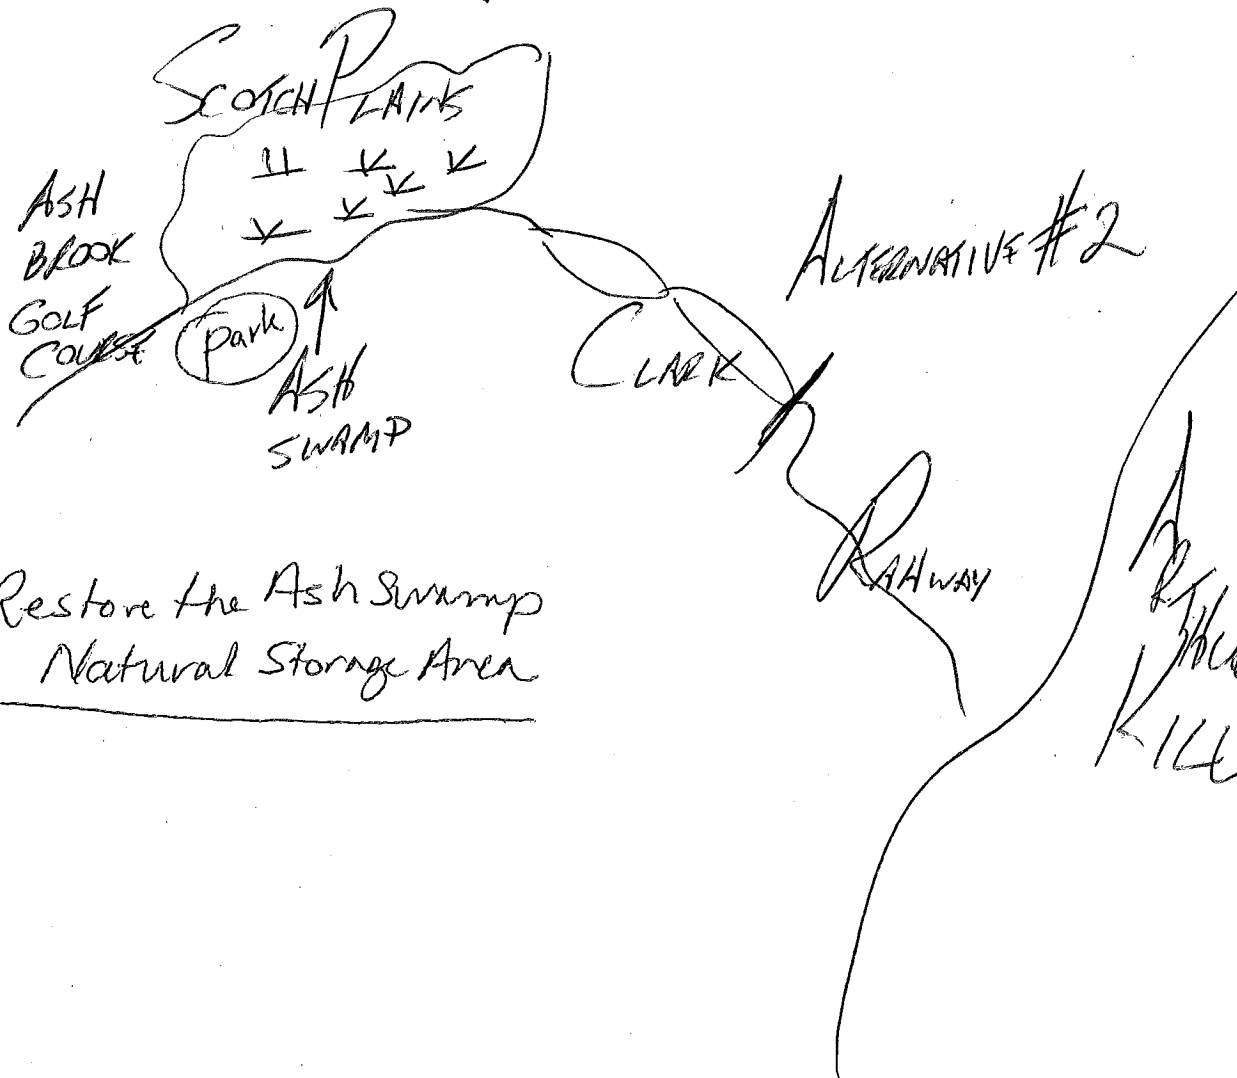 SCOTCH PLAINS
ASH
BROOK
GOLF
COURSE
park
ASH
SWAMP
ALTERNATIVE #2
CLARK
RAHWAY
KILL
Restore the Ash Swamp
Natural Storage Area